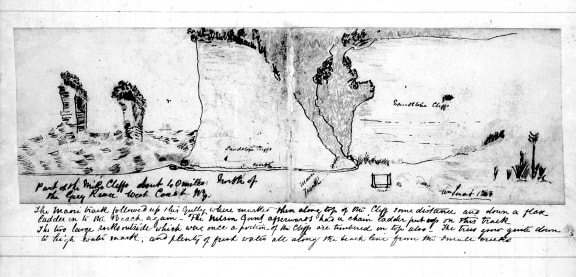 Sandstone Cliff
Sandstone Cliffs
Maori
track
Part of the Cliffs about 40 miles North of
the Grey River West Coast N.Z.
The Maori track followed up this Gully, where marked then along top of the Cliff some distance and down a flax
ladder on to the Beach again. The Nelson Govt afterwards had a chain ladder put up on this track
The two large rocks outside which was once a portion of the Cliff are timbered on top also. The trees grow quite down
to high water mark, and plenty of fresh water all along the beach line from the small creeks